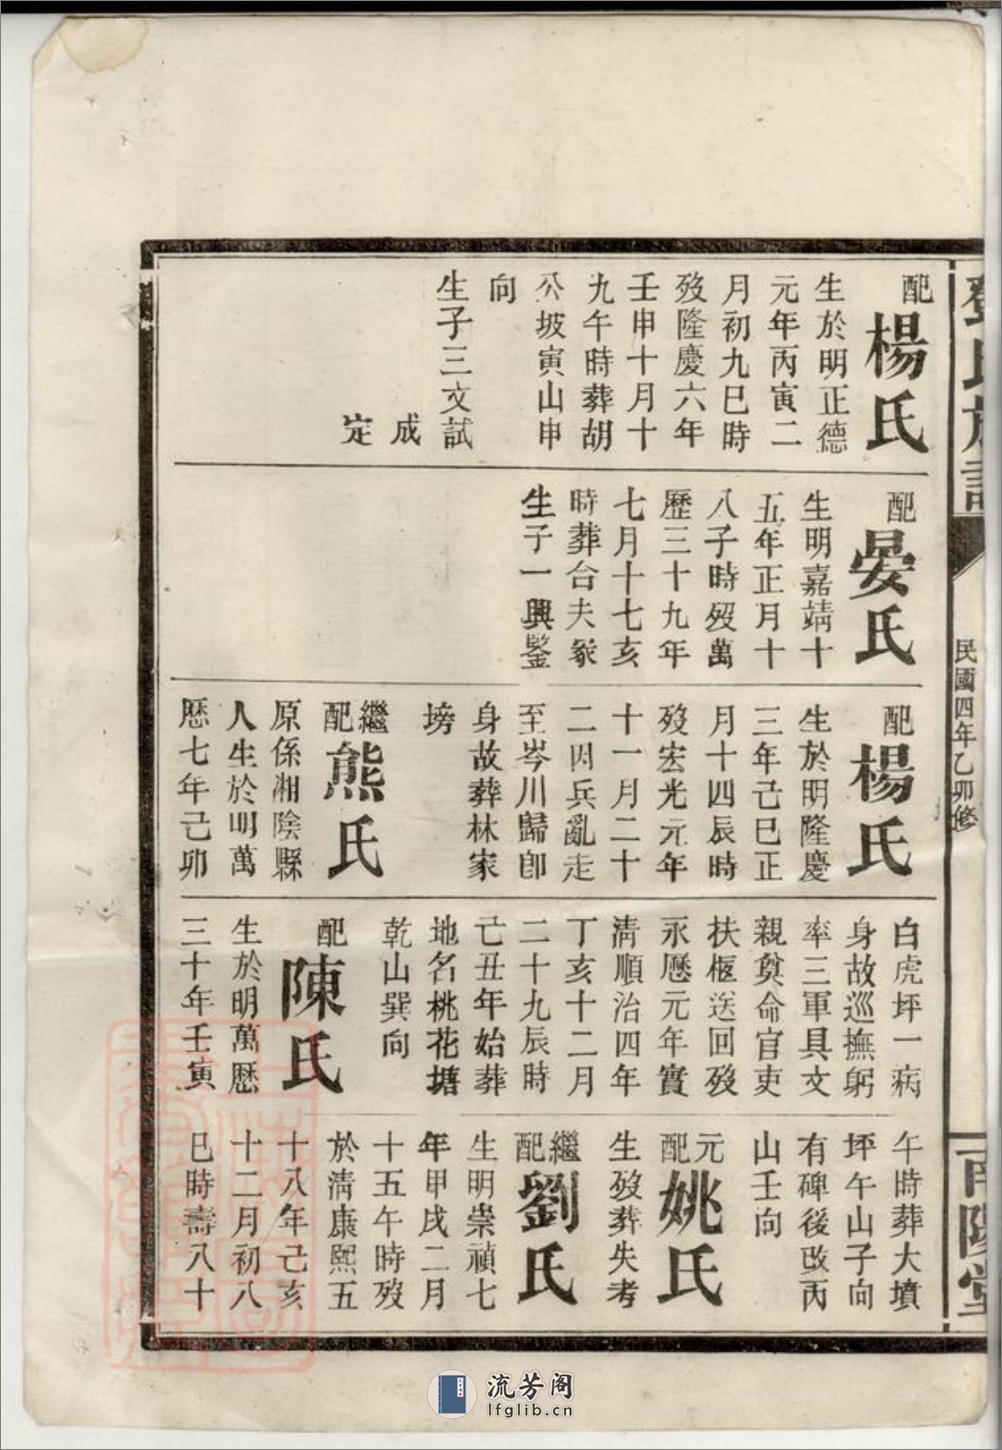 鄧氏族譜
民國四年乙卯修
南陽堂
配楊氏
生於明正德
元年丙寅二
月初九巳時
歿隆慶六年
壬申十月十
九午時葬胡
公坡寅山申
向
生子三文試
成
定
配晏氏
生明嘉靖十
五年正月十
八子時歿萬
歷三十九年
七月十七亥
時葬台夫冢
生子一興鑒
配楊氏
生於明隆慶
三年己巳正
月十四辰時
歿宏光元年
十一月二十
二因兵亂走
至岑川歸卽
身故葬林家
塝
繼配熊氏
原係湘陰縣
人生於明萬
歷七年己卯
白虎坪一病
身故巡撫躬
率三軍具文
親奠命官吏
扶柩送回歿
永歷元年實
淸順治四年
丁亥十二月
二十九辰時
己丑年始葬
地名桃花塘
乾山巽向
配陳氏
生於明萬歷
三十年壬寅
午時葬大墳
坪午山子向
有碑後改丙
山壬向
元配姚氏
生歿葬失考
繼配劉氏
生明崇禎七
年甲戌二月
十五午時歿
於淸康熙五
十八年己亥
十二月初八
巳時壽八十
流芳阁
lfglib.cn